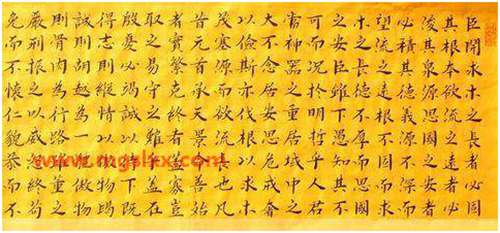 臣聞求木之長者必固
其根本欲流之遠者必
浚其泉源思國之安者
必積其德義源不深而
望流之遠根不固而求
木之長德不厚而思國
之安臣雖下愚知其不
可而況於明哲乎人君
當神器之重居域中之
大不念居安思危戒奢
以儉斯亦伐根以求木
茂塞源而欲流長也凡
昔元首承天景命善始
者實繁克終者蓋寡豈
取之易守之難乎蓋在
殷憂必竭誠以待下既
得志則縱情以傲物竭
誠則胡越為一體傲物
則骨肉為行路雖董之
嚴刑振之以威怒終苟
免而不懷仁貌恭而不